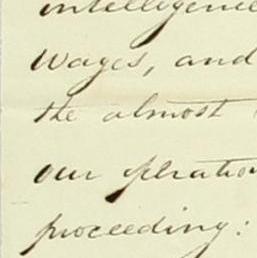 intelligence
Wages, and
the almost
our opration
proceeding: